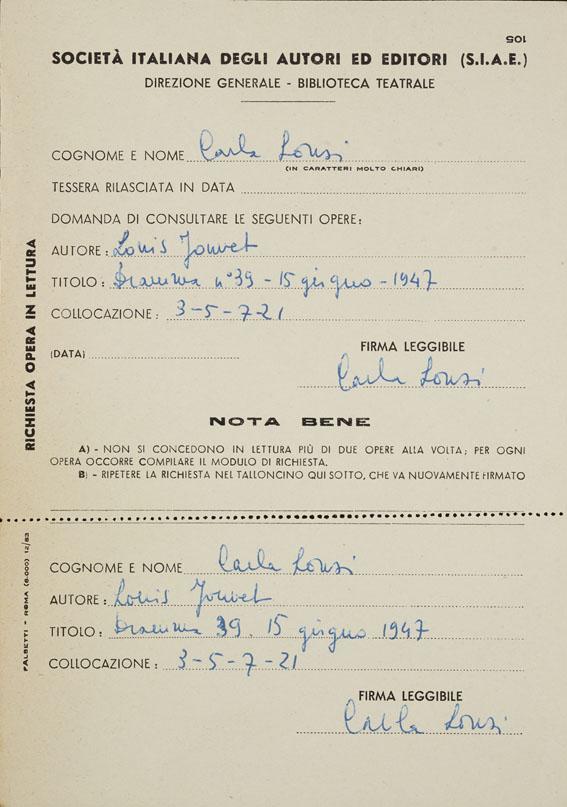 105
SOCIETÀ ITALIANA DEGLI AUTORI ED EDITORI (S.I.A.E.)
DIREZIONE GENERALE - BIBLIOTECA TEATRALE
COGNOME E NOME Carla Lonzi
(IN CARATTERI MOLTO CHIARI)
TESSERA RILASCIATA IN DATA
DOMANDA DI CONSULTARE LE SEGUENTI OPERE:
AUTORE: Louis Jouvet
TITOLO: Dramma n° 39 - 15 giugno - 1947
COLLOCAZIONE: 3-5-7-21
(DATA)
FIRMA LEGGIBILE
Carla Lonzi
RICHIESTA OPERA IN LETTURA
NOTA BENE
A) - NON SI CONCEDONO IN LETTURA PIÙ DI DUE OPERE ALLA VOLTA; PER OGNI
OPERA OCCORRE COMPILARE IL MODULO DI RICHIESTA.
B) - RIPETERE LA RICHIESTA NEL TALLONCINO QUI SOTTO, CHE VA NUOVAMENTE FIRMATO
COGNOME E NOME Carla Lonzi
AUTORE: Louis Jouvet
TITOLO: Dramma 39. 15 giugno 1947
COLLOCAZIONE: 3-5-7-21
FIRMA LEGGIBILE
Carla Lonzi
ROMA